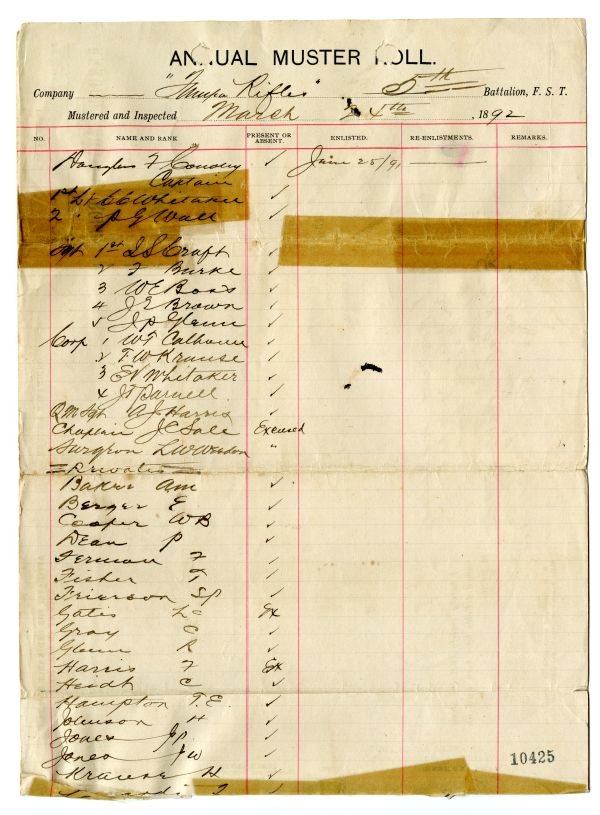 ANNUAL MUSTER ROLL.
Company "Tampa Rifles" 5th Battalion, F. S. T.
Mustered and Inspected March 24th 1892
NO. NAME AND RANK PRESENT OR ABSENT. ENLISTED. RE-ENLISTMENTS. REMARKS.
Douglas F Conoley ✓ June 25/91
Captain
1st Lt C C Whitaker ✓
2 " P G Wall ✓
Sgt 1st I S Craft ✓
2 F Burke ✓
3 W E Boas ✓
4 J E Brown ✓
5 J P Glenn ✓
Corp 1 W T Calhoun ✓
2 F W Krause ✓
3 E V Whitaker ✓
4 J T Darnell ✓
Q M Sgt A J Harris ✓
Chaplain J C Sale Excused
Surgeon L W Weedon "
Privates
Baker A M ✓
Berger E ✓
Cooper W B ✓
Dean P ✓
Ferman F ✓
Fisher T ✓
Frierson S P ✓
Gates L C Ex
Gray C ✓
Glenn R ✓
Harris F Ex
Heidt C ✓
Hampton T. E. ✓
Johnson H ✓
Jones J P ✓
Jones J W ✓
Krause H ✓
10425